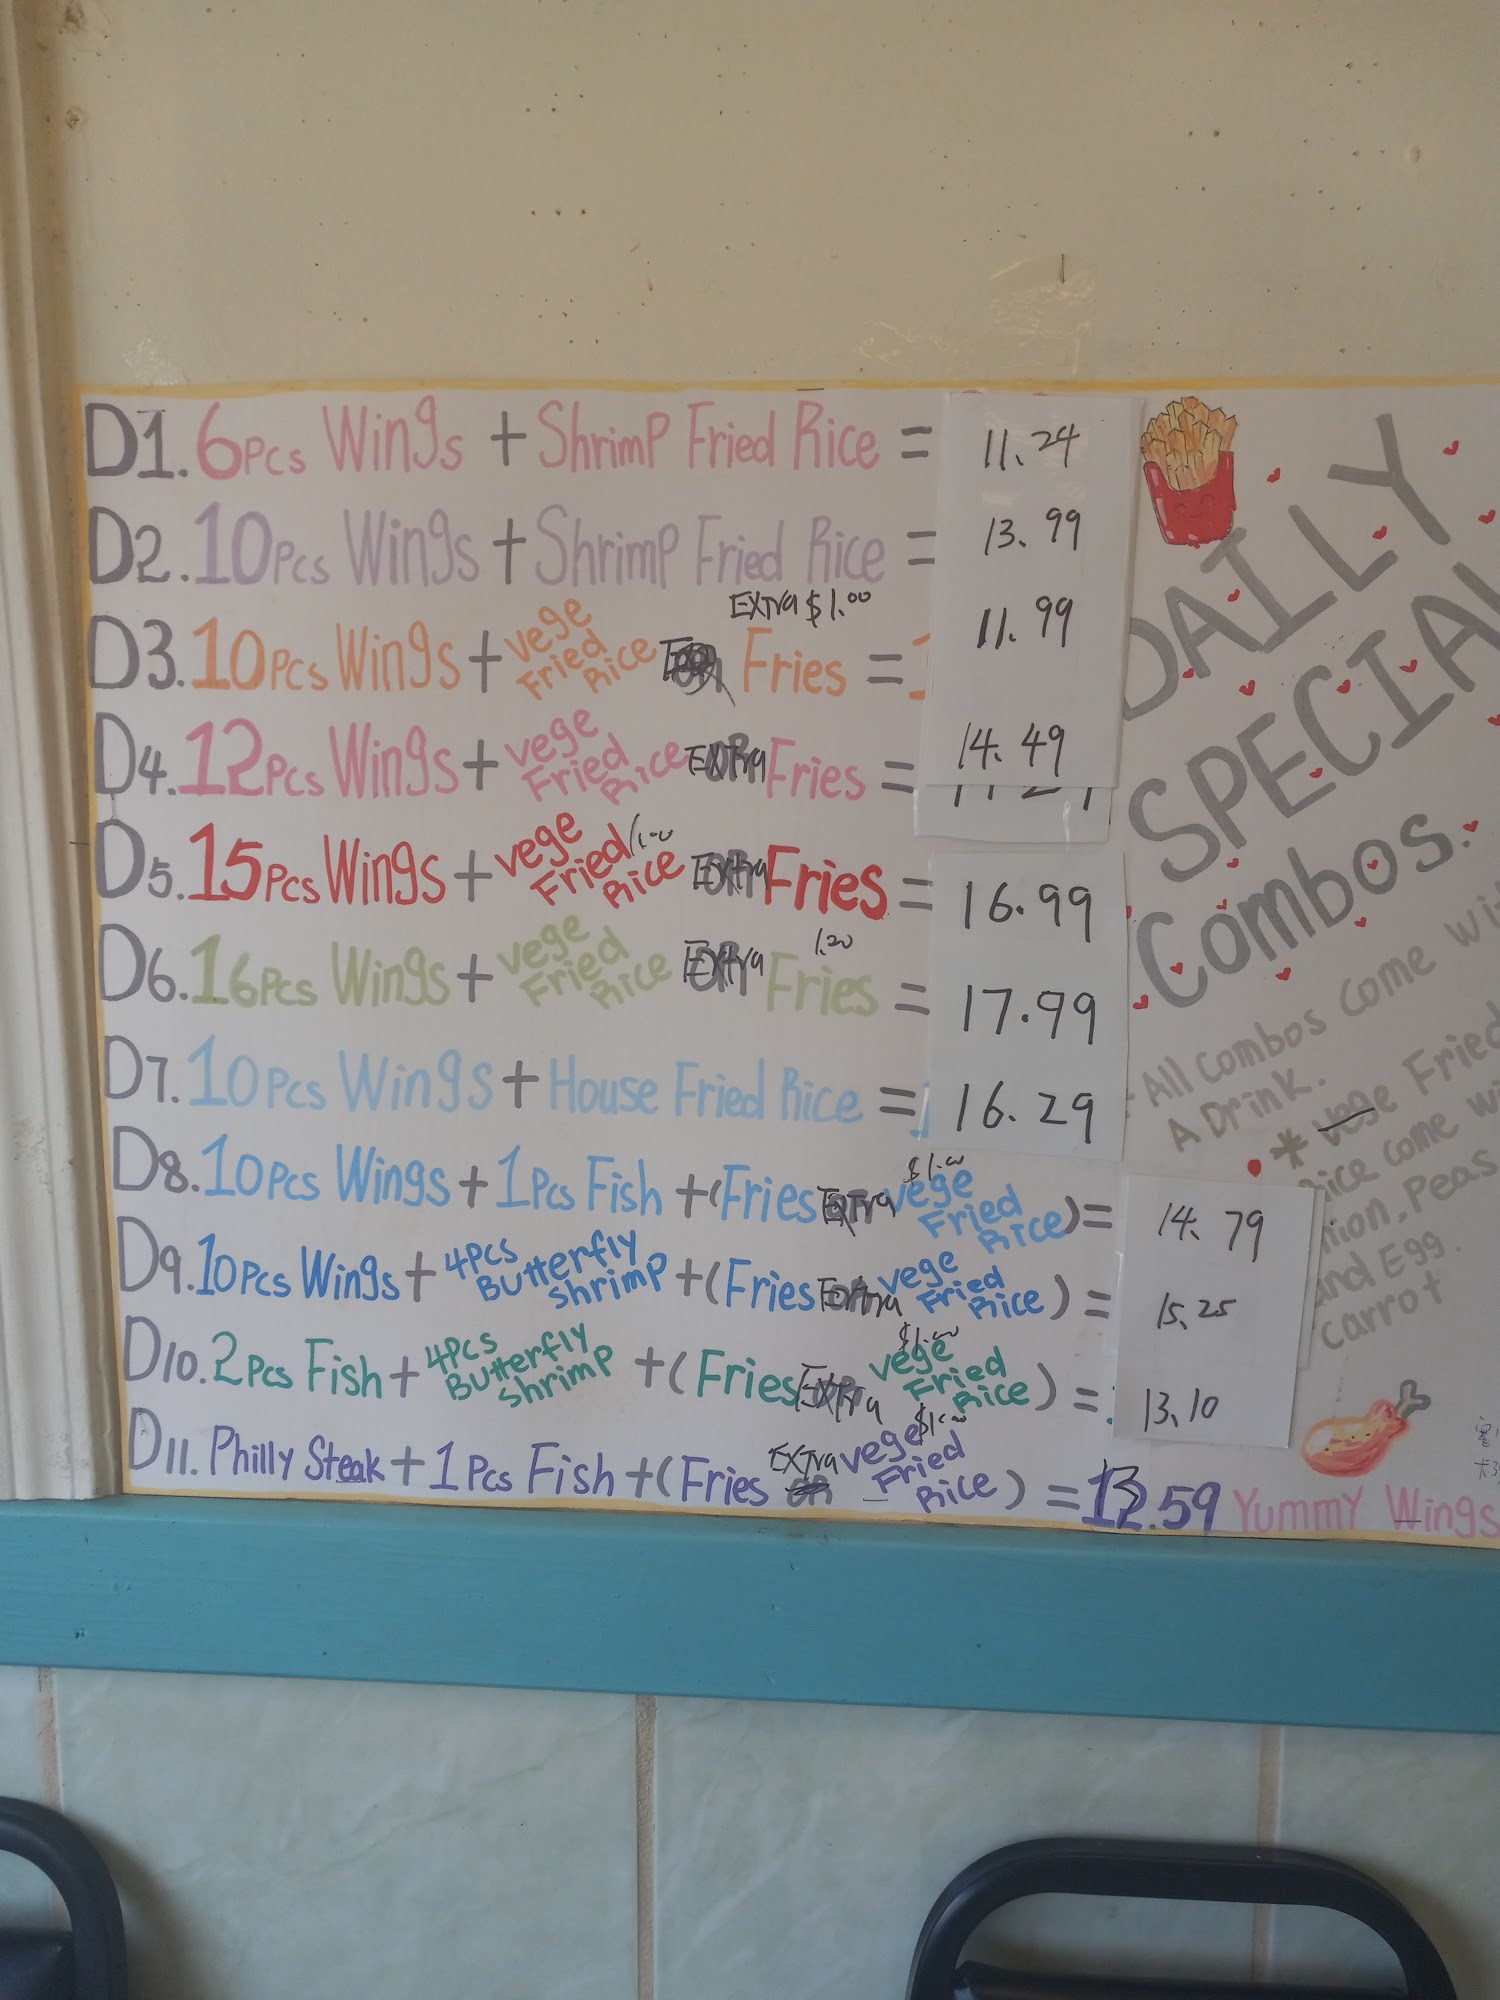 D1. 6Pcs Wings + Shrimp Fried Rice = 11.24
D2. 10Pcs Wings + Shrimp Fried Rice = 13.99
EXTra $1.00
D3. 10Pcs Wings + vege Fried Rice Fries = 11.99
D4. 12Pcs Wings + vege Fried Rice EXTra Fries = 14.49
D5. 15Pcs Wings + vege Fried Rice 1.00 Extra Fries = 16.99
D6. 16Pcs Wings + vege Fried Rice Extra Fries 1.20 = 17.99
D7. 10Pcs Wings + House Fried Rice = 16.29
D8. 10Pcs Wings + 1Pcs Fish + (Fries EXTra $1.00 vege Fried Rice) = 14.79
D9. 10Pcs Wings + 4PCS Butterfly shrimp + (Fries Extra vege Fried Rice) = 15.25
D10. 2Pcs Fish + 4PCS Butterfly shrimp + (Fries EXTra $1.00 vege Fried Rice) = 13.10
D11. Philly Steak + 1Pcs Fish + (Fries EXTra $1.00 vege Fried Rice) = 13.59
DAILY
SPECIAL
Combos.
All Combos Come
A Drink.
* vege Fried
Rice come
Peas
and Egg.
carrot
Yummy Wings